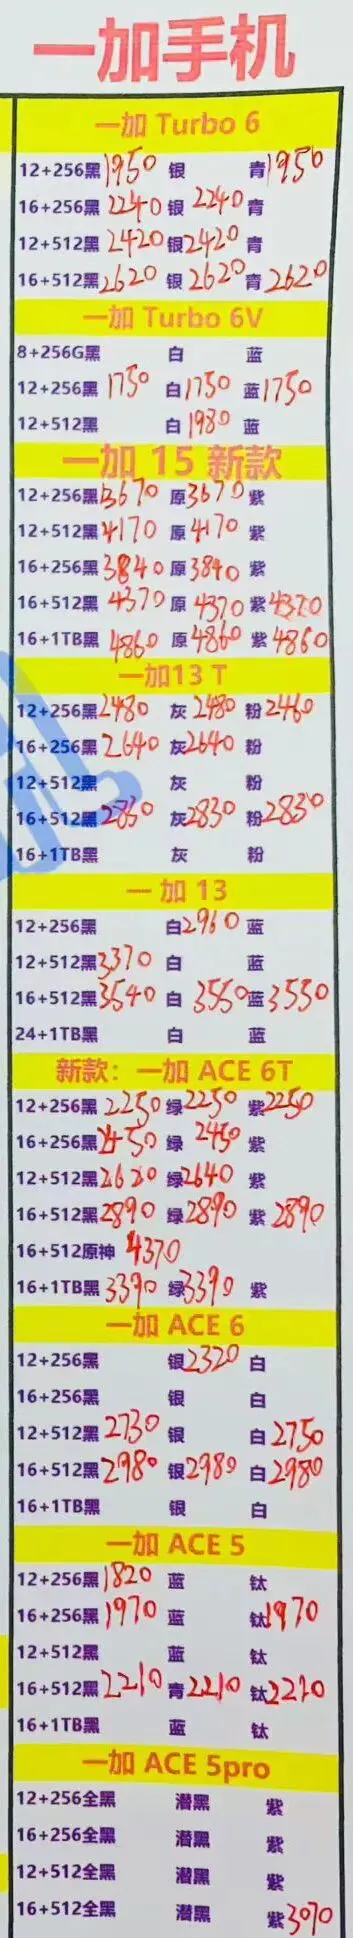 一加手机
一加 Turbo 6
12+256黑1950 银 青1950
16+256黑2240 银2240 青
12+512黑2420 银2420 青
16+512黑2620 银2620 青2620
一加 Turbo 6V
8+256G黑 白 蓝
12+256黑1750 白1750 蓝1750
12+512黑 白1980 蓝
一加 15 新款
12+256黑3670 原3670 紫
12+512黑4170 原4170 紫
16+256黑3840 原3840 紫
16+512黑4370 原4370 紫4370
16+1TB黑4860 原4860 紫4860
一加13 T
12+256黑2480 灰2480 粉2460
16+256黑2640 灰2640 粉
12+512黑 灰 粉
16+512黑2830 灰2830 粉2830
16+1TB黑 灰 粉
一加 13
12+256黑 白2960 蓝
12+512黑3370 白 蓝
16+512黑3540 白3550 蓝3550
24+1TB黑 白 蓝
新款：一加 ACE 6T
12+256黑2250 绿2250 紫2250
16+256黑2450 绿2450 紫
12+512黑2620 绿2640 紫
16+512黑2890 绿2890 紫2890
16+512原神 4370
16+1TB黑3390 绿3390 紫
一加 ACE 6
12+256黑 银2320 白
16+256黑 银 白
12+512黑2730 银 白2750
16+512黑2980 银2980 白2980
16+1TB黑 银 白
一加 ACE 5
12+256黑1820 蓝 钛
16+256黑1970 蓝 钛1970
12+512黑 蓝 钛
16+512黑2210 青2210 钛2210
16+1TB黑 蓝 钛
一加 ACE 5pro
12+256全黑 潜黑 紫
16+256全黑 潜黑 紫
12+512全黑 潜黑 紫
16+512全黑 潜黑 紫3070